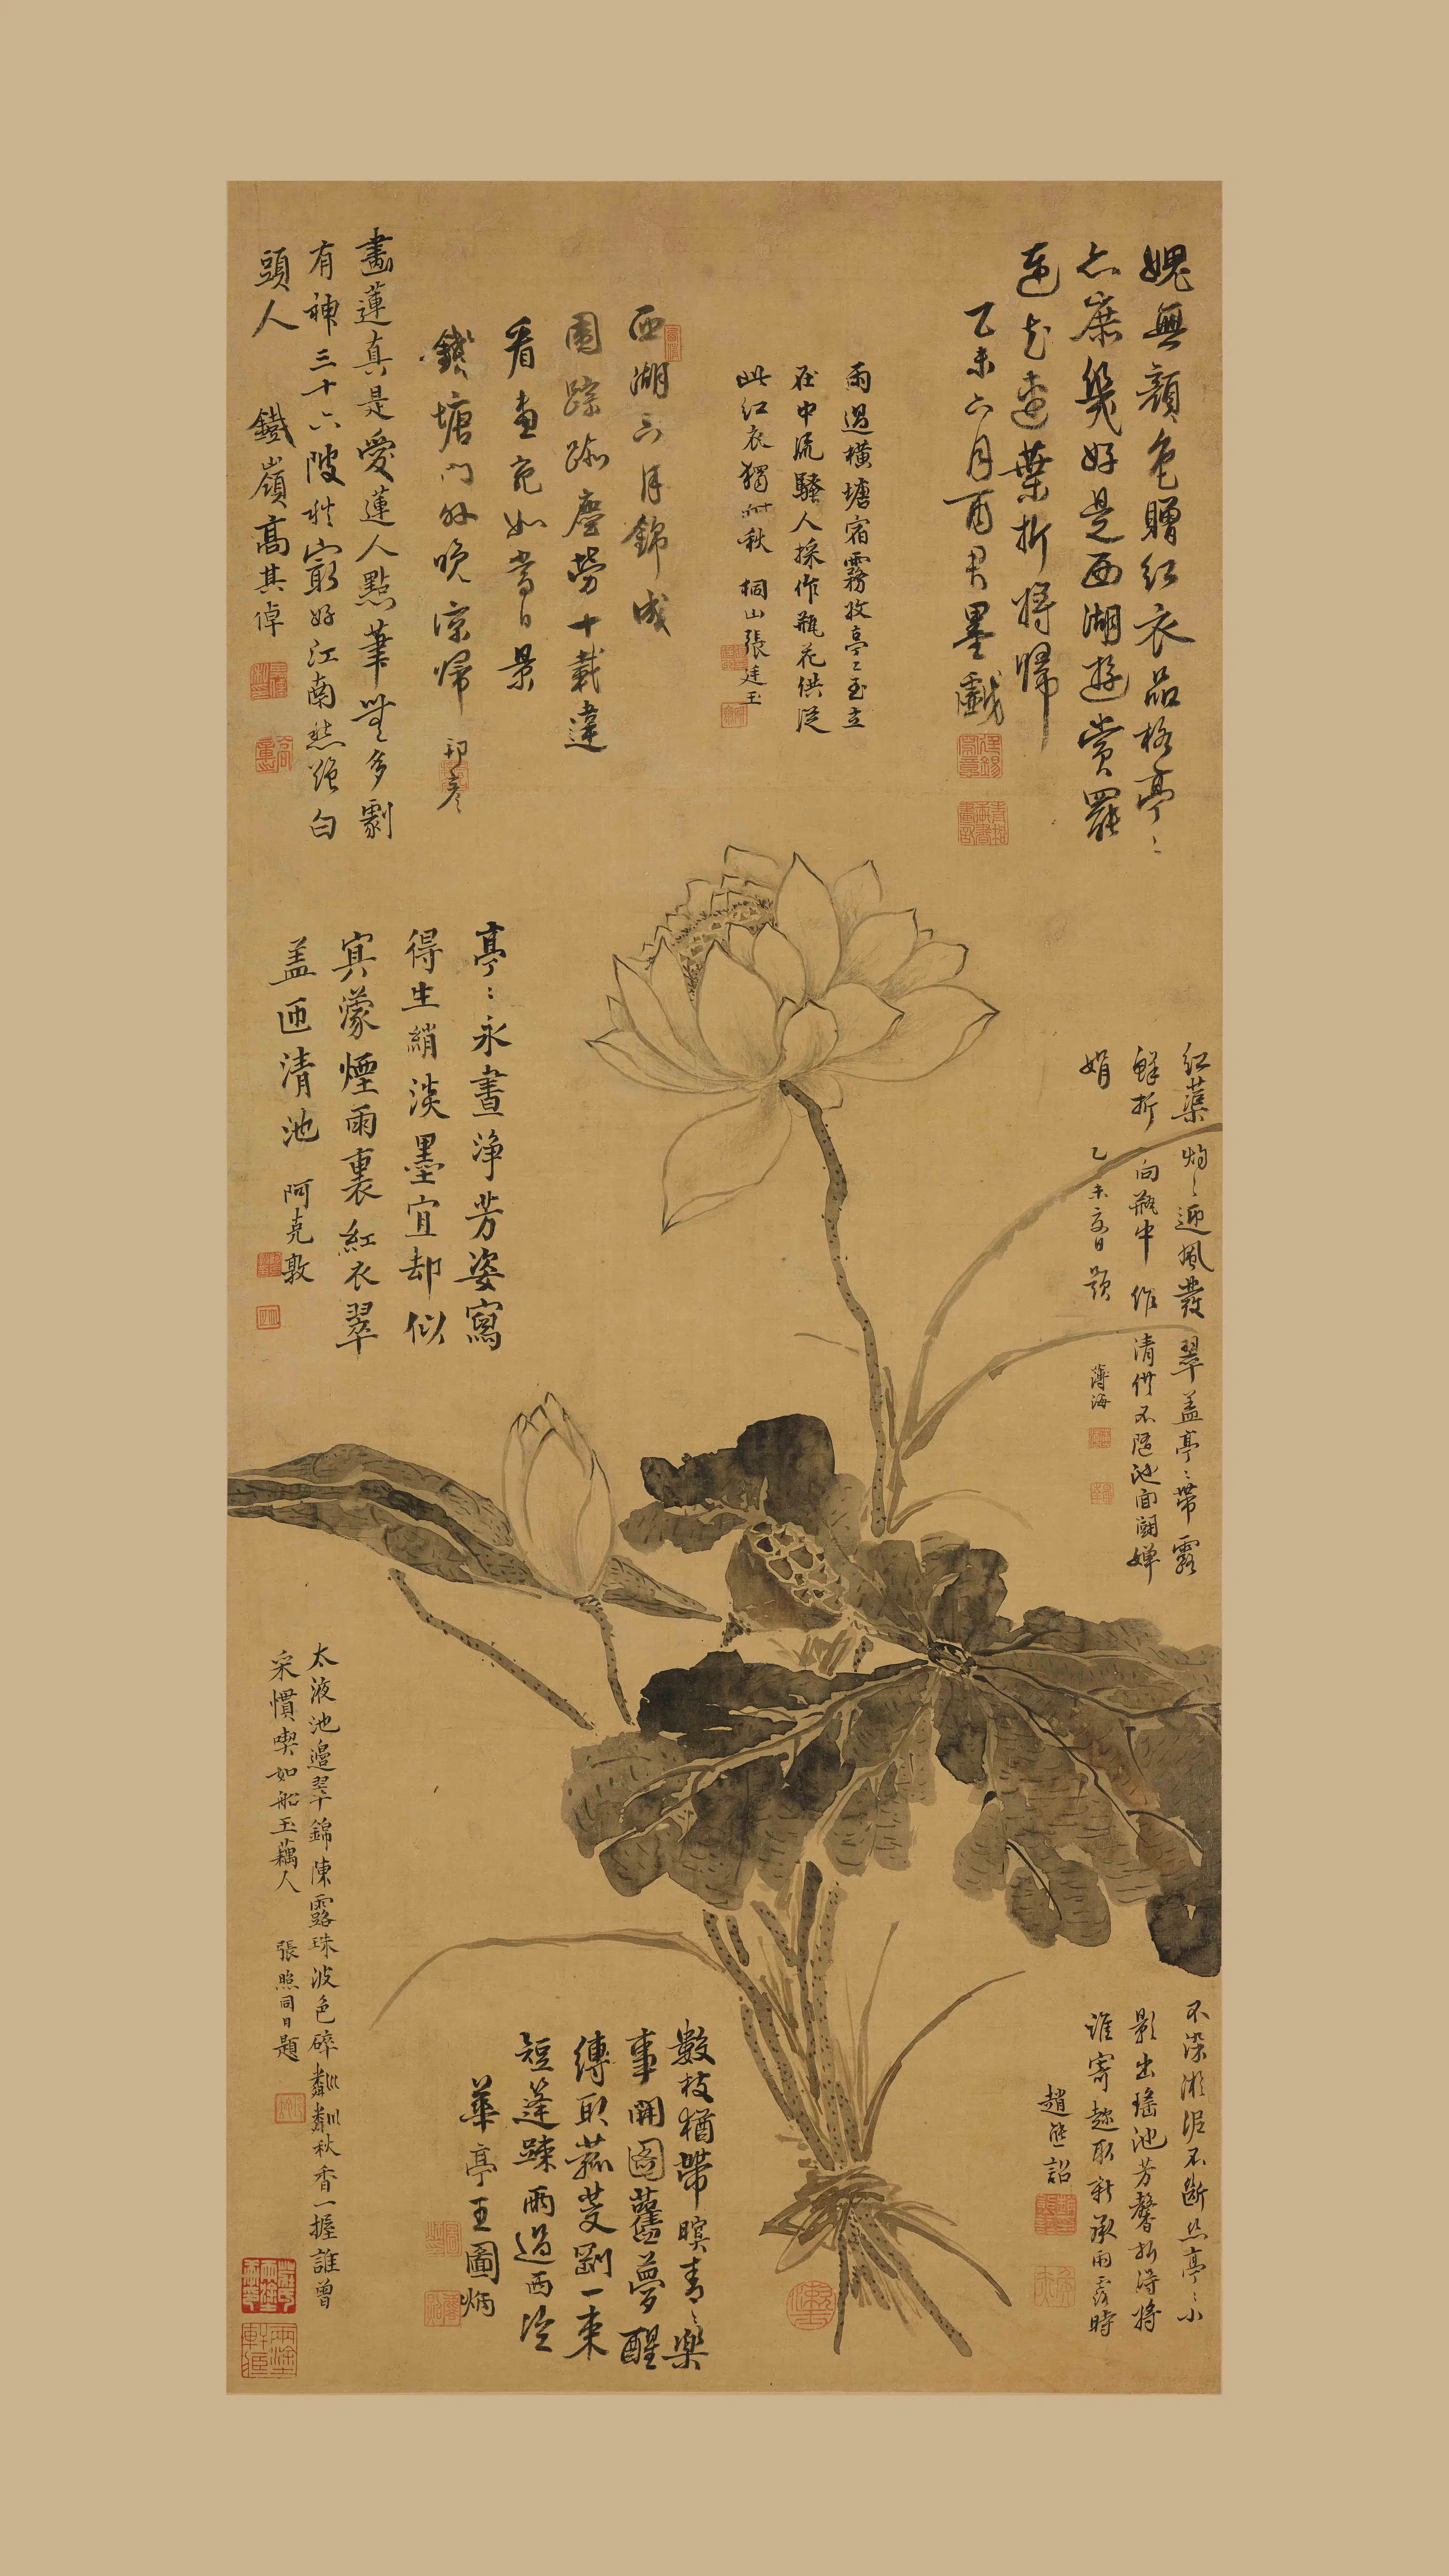 媿無顏色贈紅衣品格亭〻
亦庶幾好是西湖遊賞罷
蓮花蓮葉折將歸
乙未六月酉君墨戲
雨過橫塘宿霧收亭〻玉立
在中流騷人採作瓶花供從
此紅衣獨耐秋 桐山張廷玉
西湖六月錦成
圍踪跡塵勞十載違
看畫宛如當日景
錢塘門外晚涼歸
畫蓮真是愛蓮人點筆無多劇
有神三十六陂秋寂好江南愁絕白
頭人
鐵嶺高其倬
亭〻永晝淨芳姿寫
得生綃淡墨宜却似
冥濛煙雨裏紅衣翠
盖匝清池 阿克敦
紅蕖灼〻迎風發翠盖亭〻帶露
鮮折向瓶中作清供不隨池面鬪嬋
娟 乙未夏日題 薄海
太液池邊翠錦陳露珠波色碎粼粼秋香一握誰曾
采慣喫如船玉藕人 張照同日題
數枝猶帶暝青〻樂
事開圖舊夢醒
縛取菰芰剛一束
短篷踈雨過西泠
華亭王圖炳
不染淤泥不斷絲亭〻小
影出瑤池芳馨折得將
誰寄趁取新承雨露時
趙熊詔